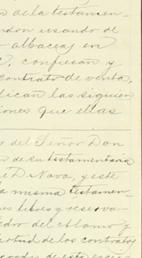 de la testamen-
usando de
albaceas en
confiesan y
contrato de venta,
lican las siguien
iones que ellas
del Señor Don
n de su testamentaria
e D. Nava, y este
a misma testamen-
es libres y reserva
edor del estamo y
ertud de los contratos